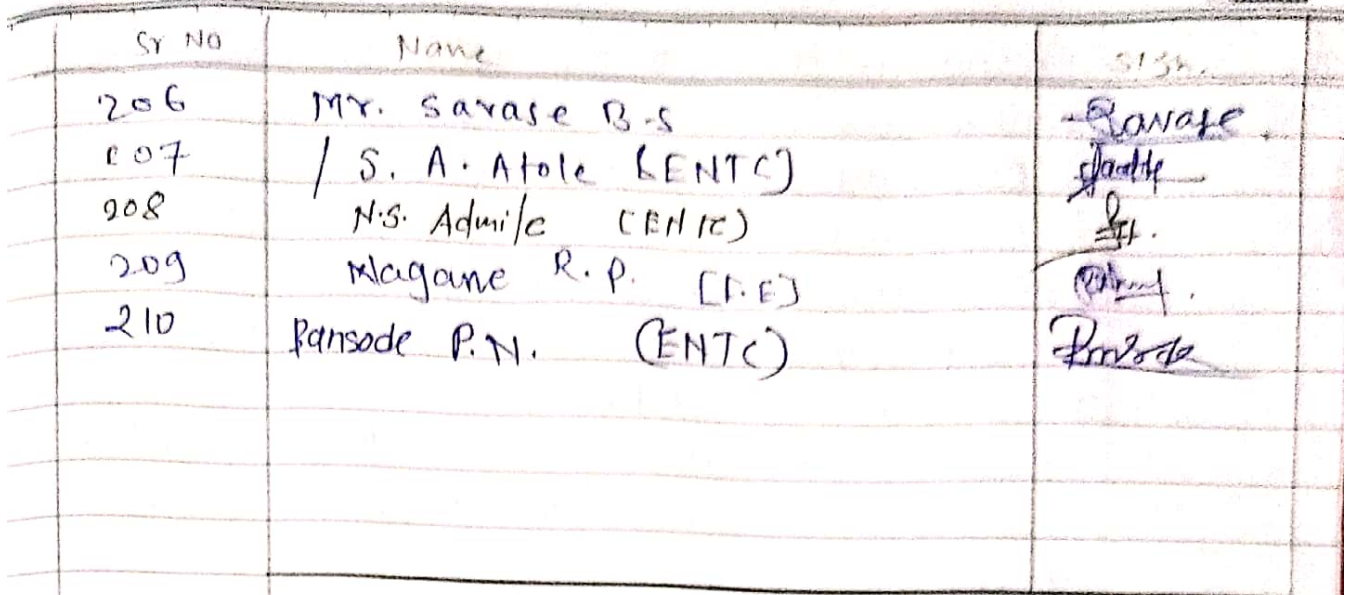 Sr No Name Sign.
206 Mr. Sarase B.S Sarase
207 / S. A. Atole [ENTC]
208 N.S. Admile (ENTC)
209 Magane R.P. [F.E]
210 Bansode P.N. (ENTC)